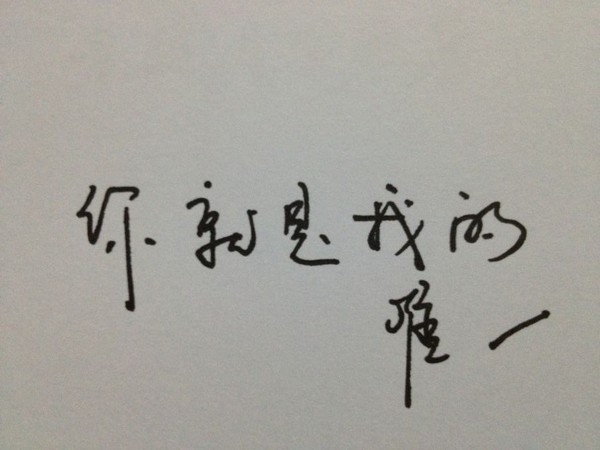 你就是我的
唯一